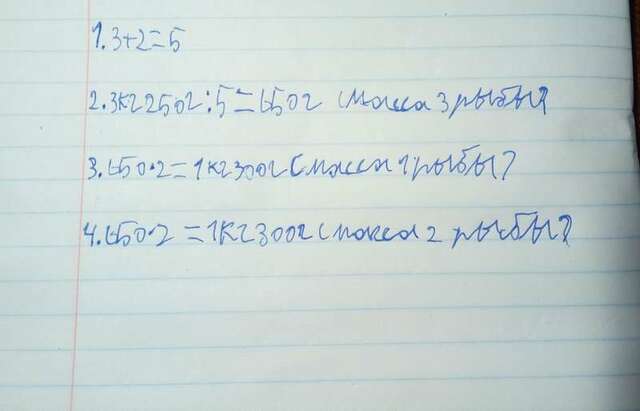 1. 3+2=5
2. 3кг250г:5=650г (масса 3 рыбы)
3. 650·2=1кг300г (масса 1 рыбы)
4. 650·2=1кг300г (масса 2 рыбы)